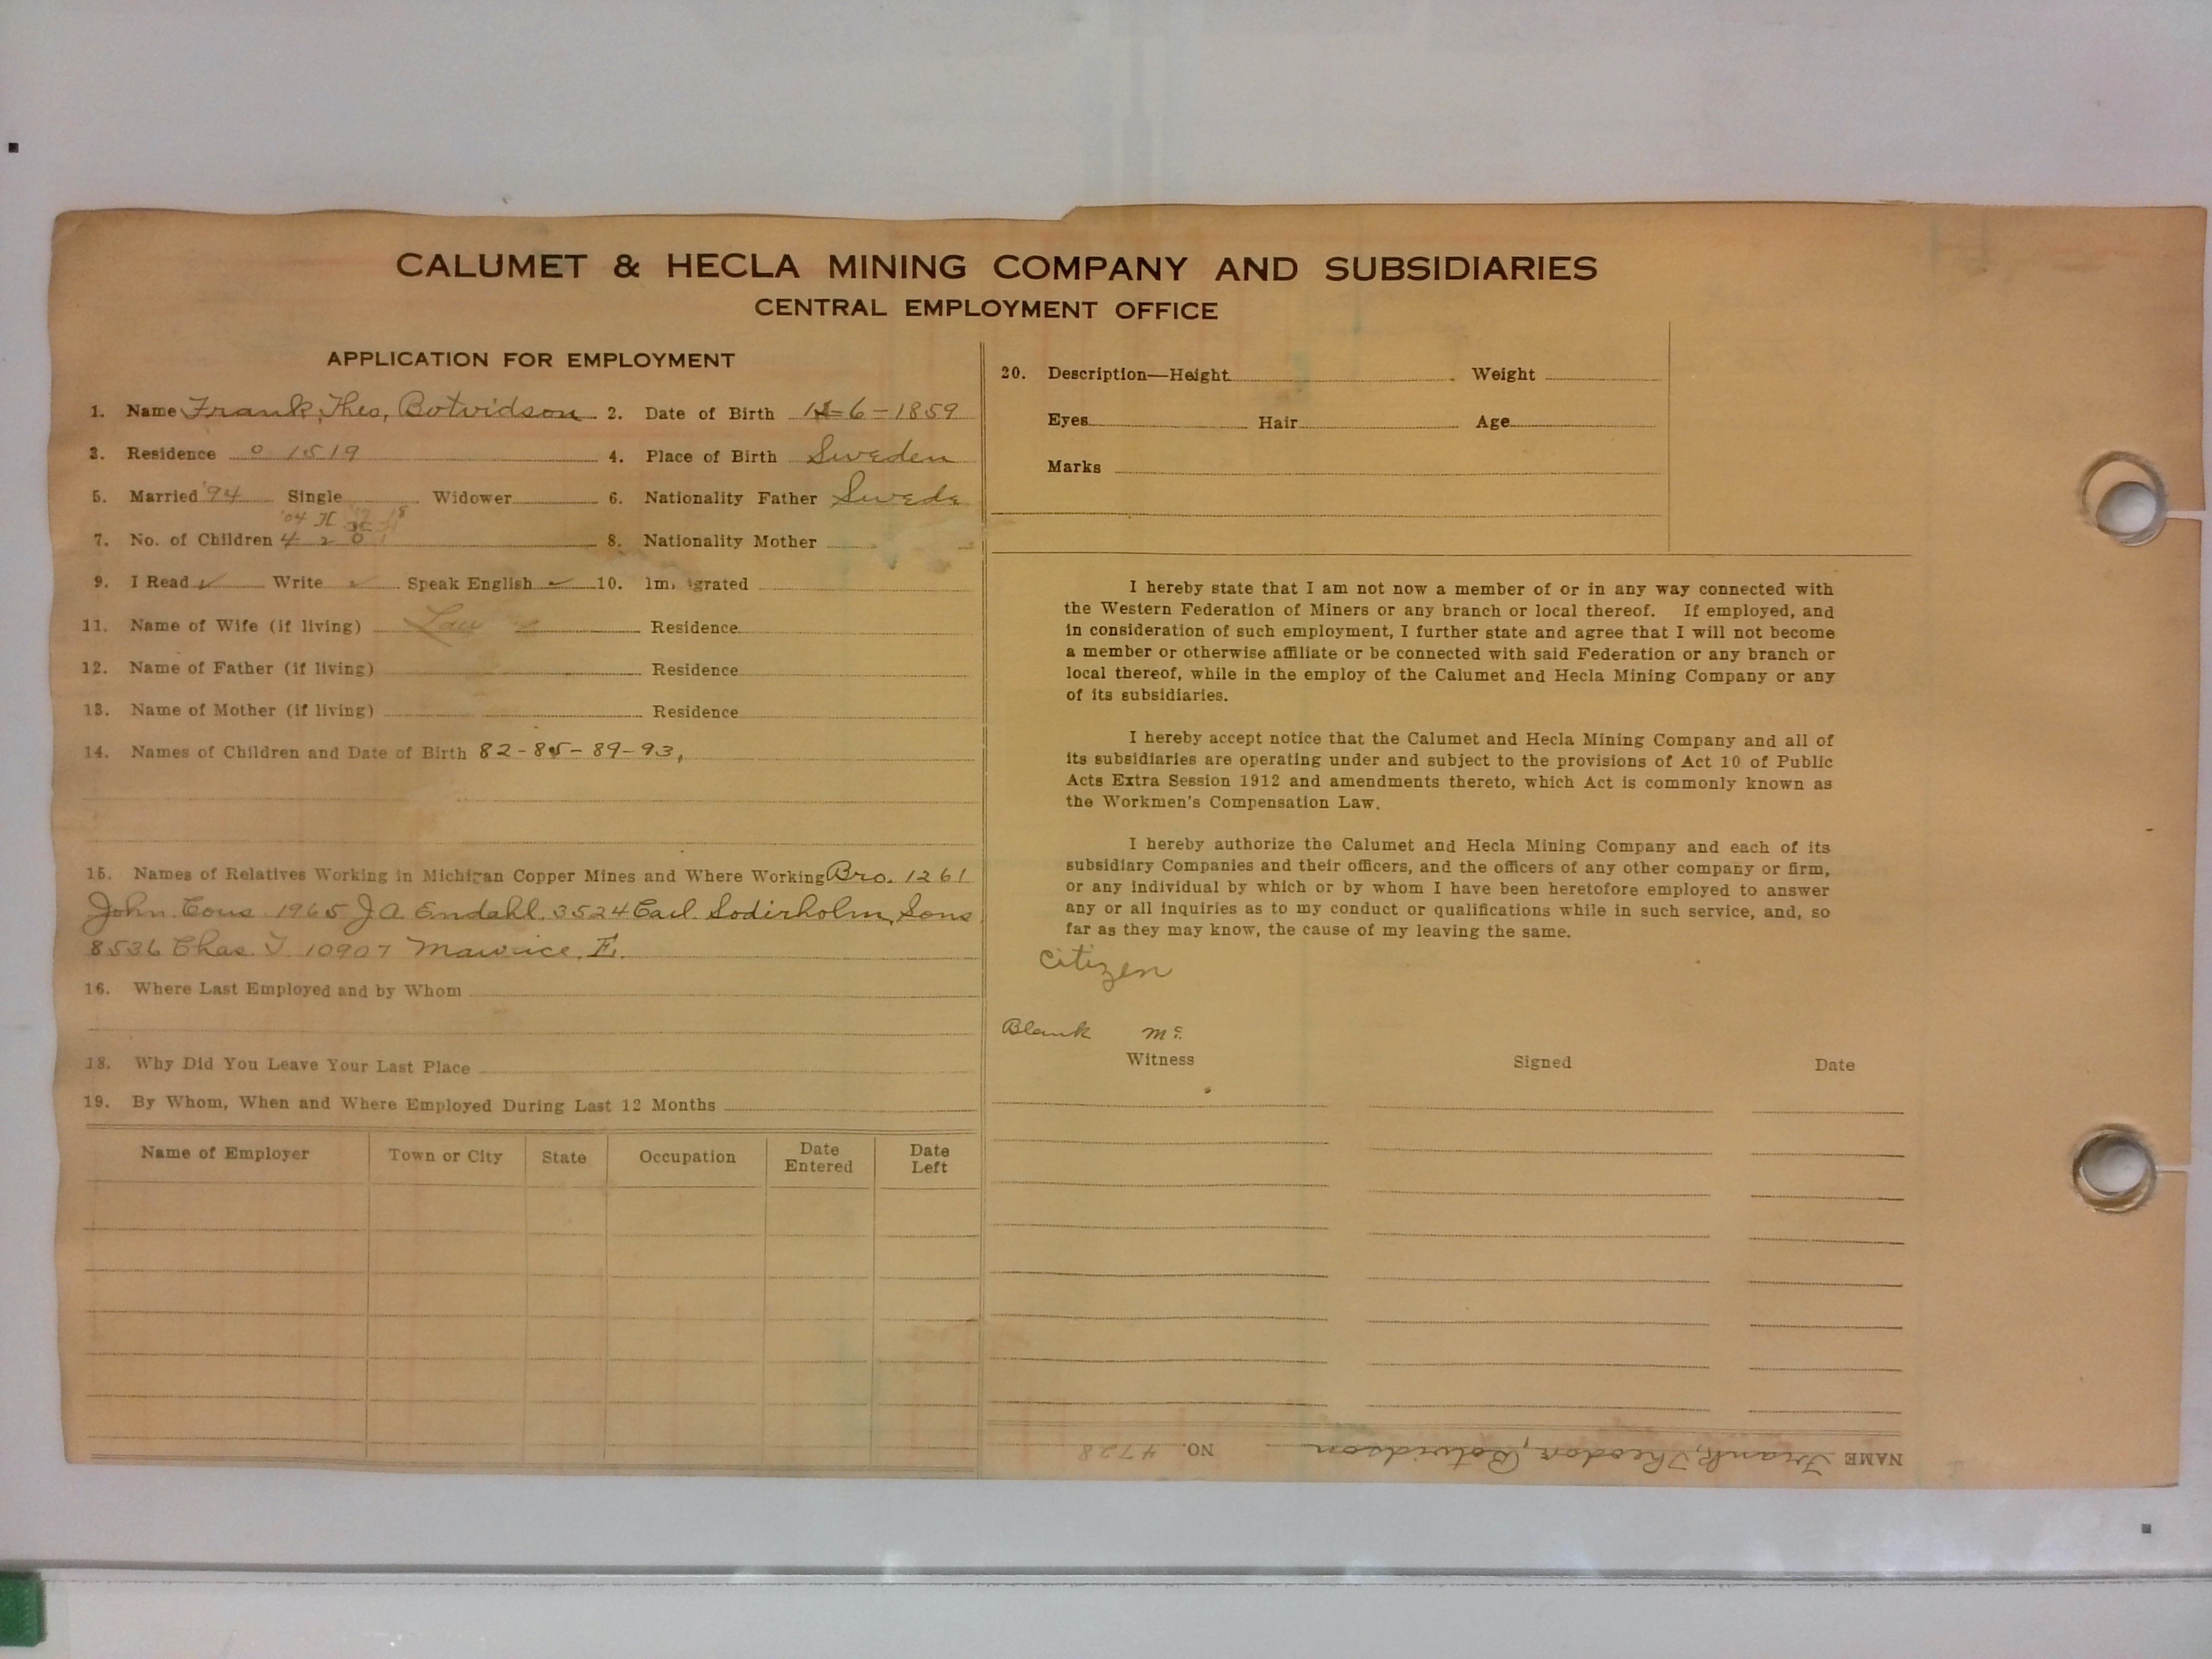 CALUMET & HECLA MINING COMPANY AND SUBSIDIARIES
CENTRAL EMPLOYMENT OFFICE
APPLICATION FOR EMPLOYMENT
1. Name Frank, Theo, Botvidson 2. Date of Birth 12-6-1859
3. Residence 0 1519 4. Place of Birth Sweden
5. Married '94 Single Widower 6. Nationality Father Swede
'04 H 18
7. No. of Children 4 2 0 8. Nationality Mother
9. I Read ✓ Write ✓ Speak English ✓ 10. Im igrated
11. Name of Wife (if living) Residence
12. Name of Father (if living) Residence
13. Name of Mother (if living) Residence
14. Names of Children and Date of Birth 82-85-89-93,
15. Names of Relatives Working in Michigan Copper Mines and Where Working Bro. 1261
John. Cous. 1965 J.A. Endahl. 3524 Carl Soderholm, Sons
8536 Chas. T. 10907 Mawrice. E.
16. Where Last Employed and by Whom
18. Why Did You Leave Your Last Place
19. By Whom, When and Where Employed During Last 12 Months
Name of Employer Town or City State Occupation Date Entered Date Left
20. Description—Height Weight
Eyes Hair Age
Marks
I hereby state that I am not now a member of or in any way connected with
the Western Federation of Miners or any branch or local thereof. If employed, and
in consideration of such employment, I further state and agree that I will not become
a member or otherwise affiliate or be connected with said Federation or any branch or
local thereof, while in the employ of the Calumet and Hecla Mining Company or any
of its subsidiaries.
I hereby accept notice that the Calumet and Hecla Mining Company and all of
its subsidiaries are operating under and subject to the provisions of Act 10 of Public
Acts Extra Session 1912 and amendments thereto, which Act is commonly known as
the Workmen's Compensation Law.
I hereby authorize the Calumet and Hecla Mining Company and each of its
subsidiary Companies and their officers, and the officers of any other company or firm,
or any individual by which or by whom I have been heretofore employed to answer
any or all inquiries as to my conduct or qualifications while in such service, and, so
far as they may know, the cause of my leaving the same.
citizen
Blank Mc
Witness Signed Date
NAME Frank, Theodor, Botvidson NO. 4728